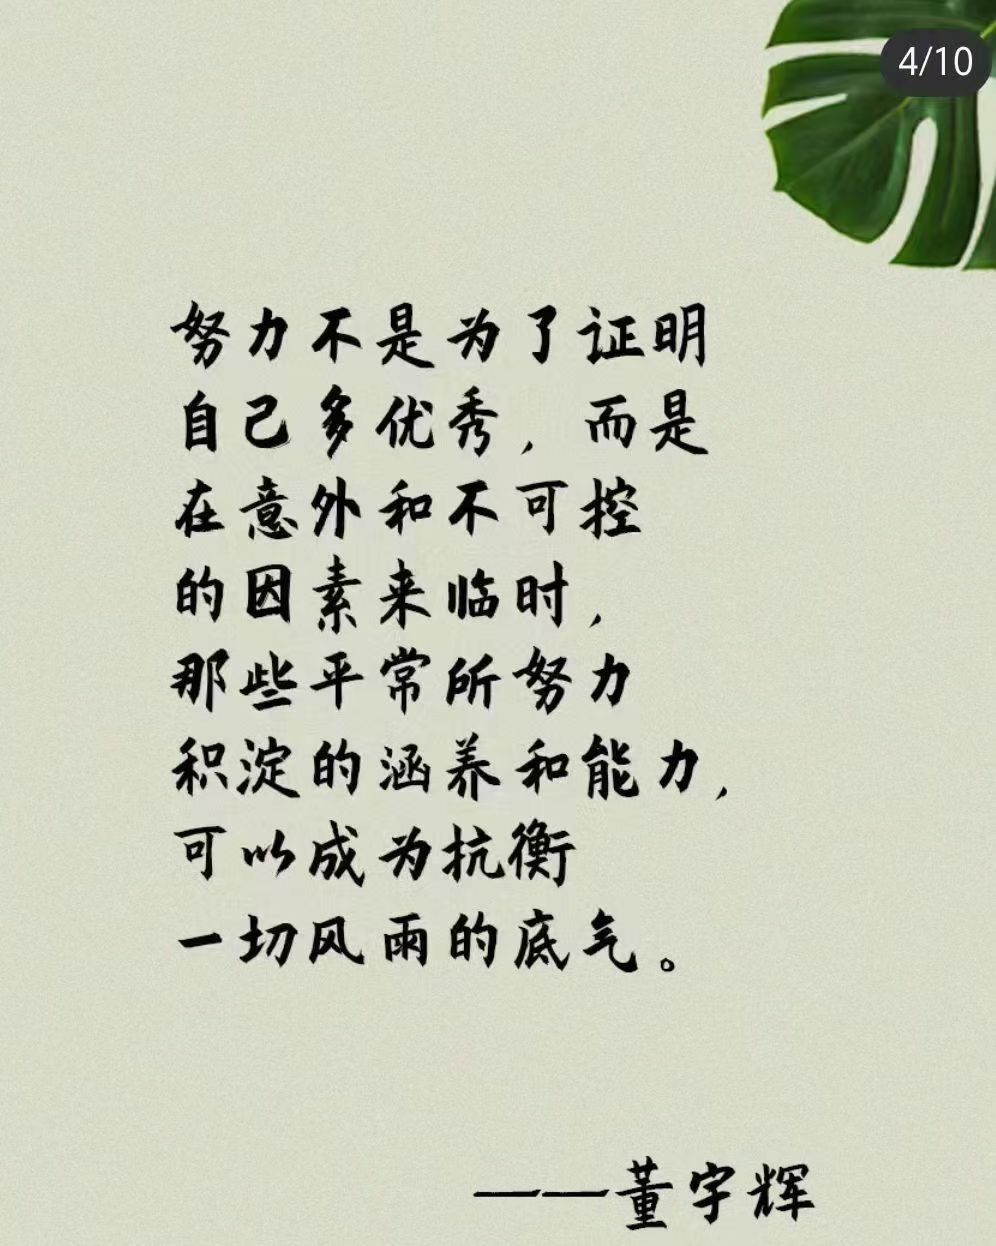 4/10
努力不是为了证明
自己多优秀，而是
在意外和不可控
的因素来临时，
那些平常所努力
积淀的涵养和能力，
可以成为抗衡
一切风雨的底气。
——董宇辉